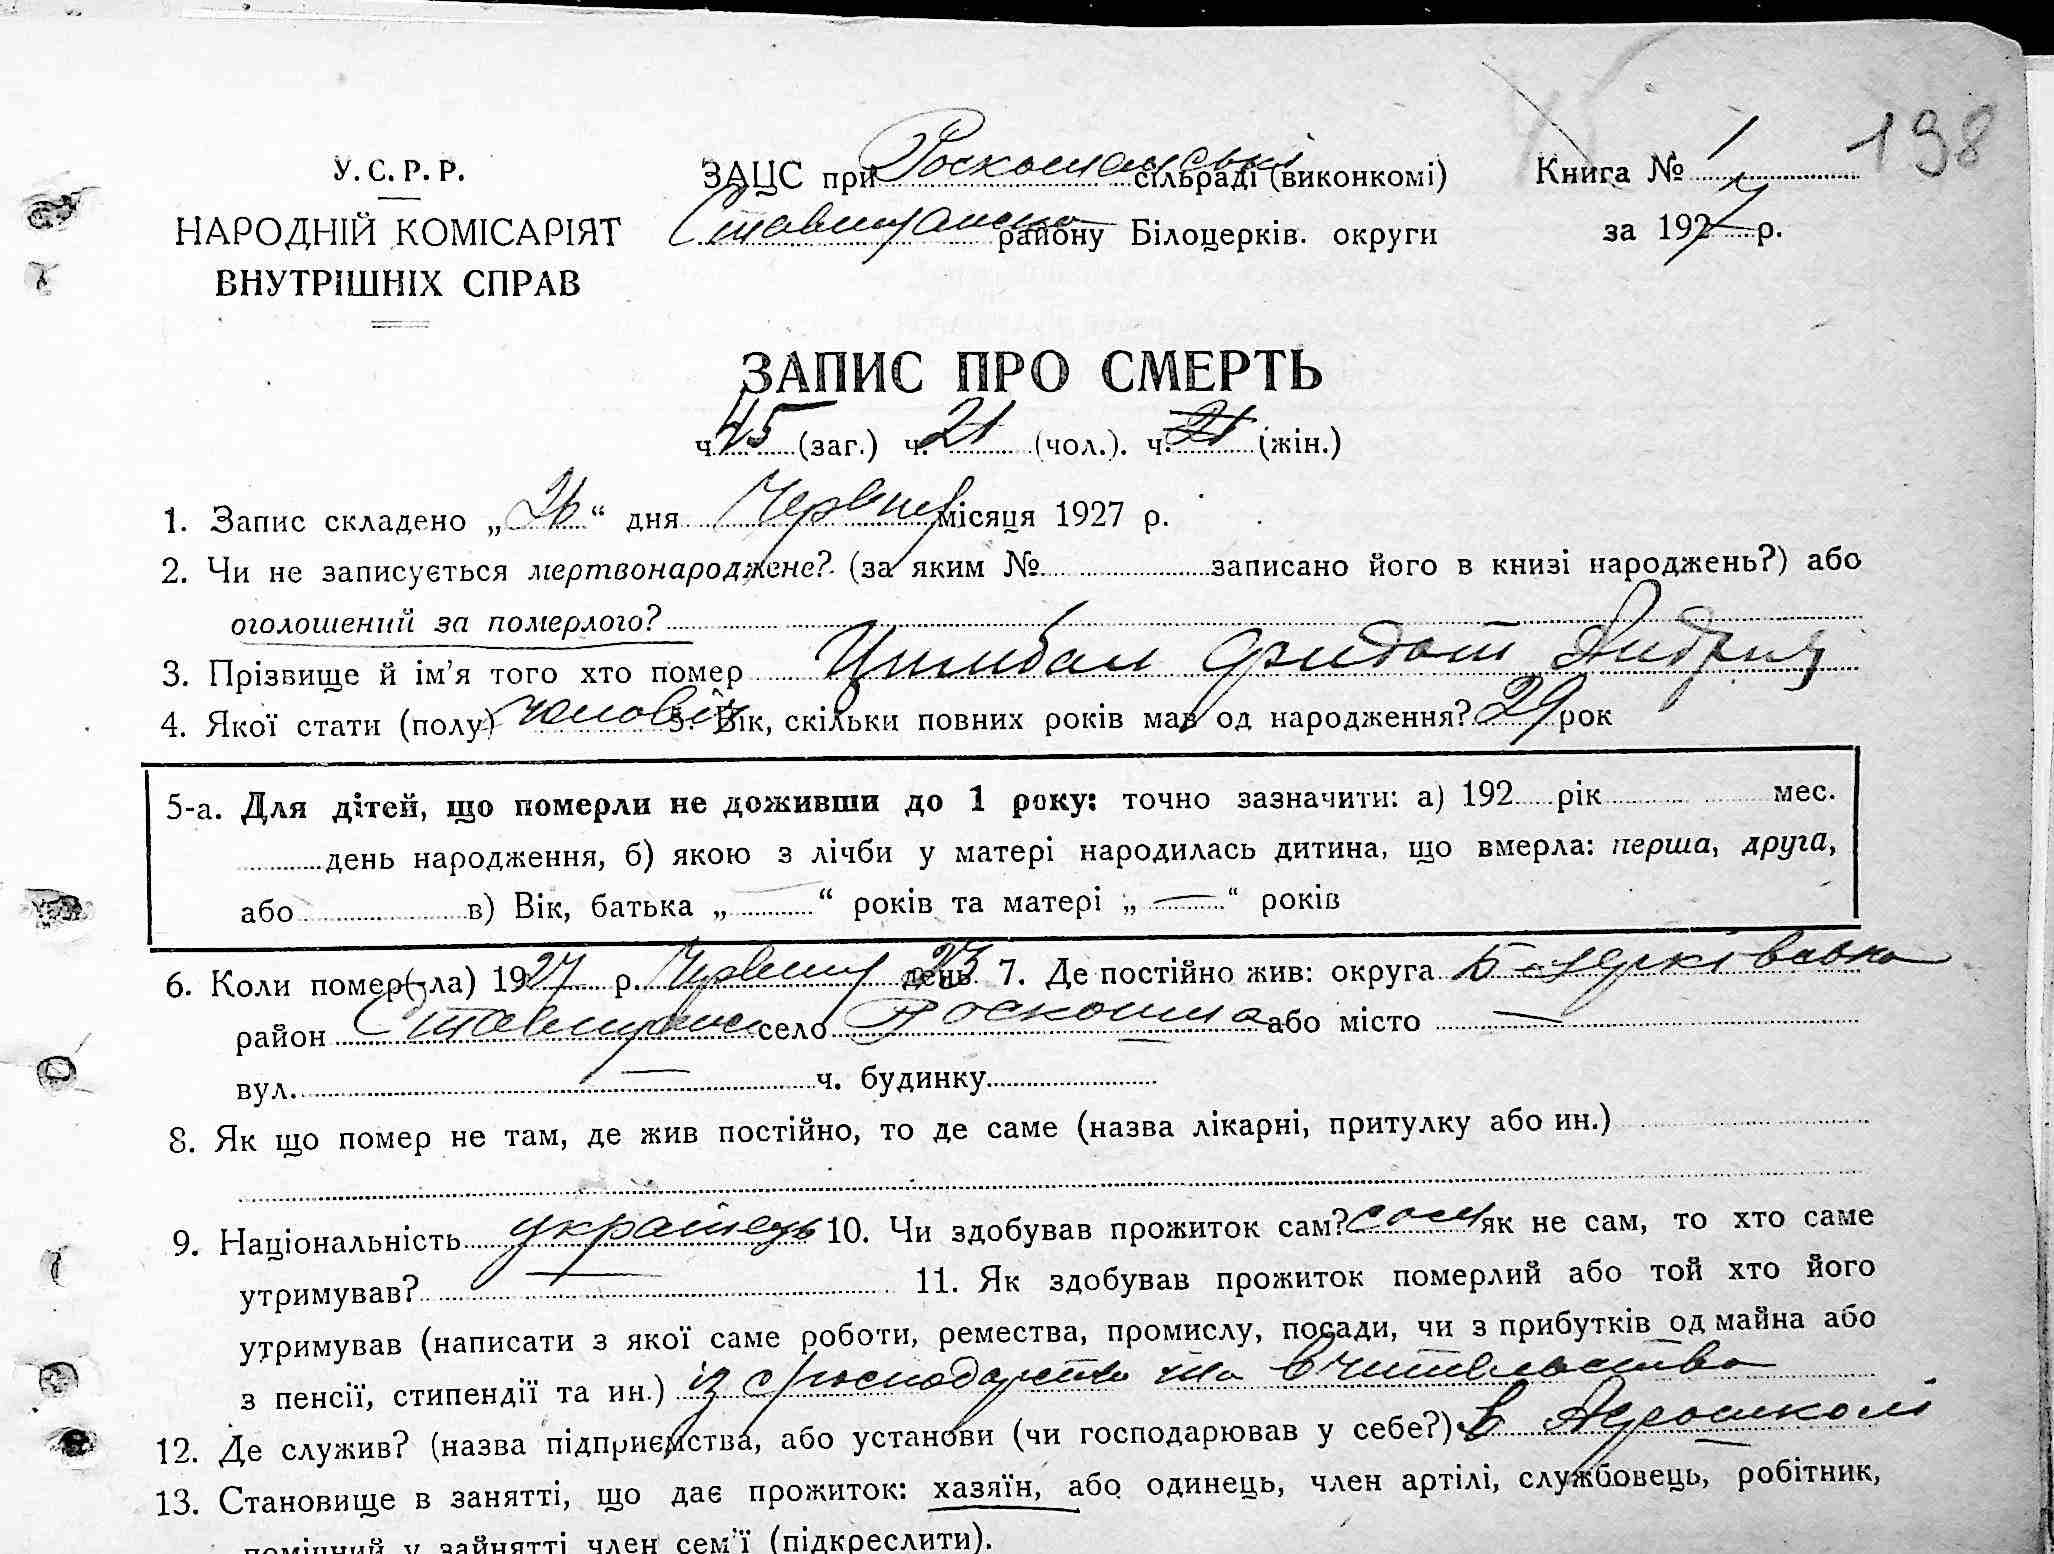 198
У.С.Р.Р.
НАРОДНІЙ КОМІСАРІЯТ
ВНУТРІШНІХ СПРАВ
ЗАЦС при Роскошанські сільраді (виконкомі)
Ставищанського району Білоцерків. округи
Книга № 1
за 1927 р.
ЗАПИС ПРО СМЕРТЬ
ч. 45 (заг.) ч. 21 (чол.). ч. 21 (жін.)
1. Запис складено „26“ дня Червня місяця 1927 р.
2. Чи не записується мертвонароджене? (за яким № записано його в книзі народжень?) або
оголошений за померлого?
3. Прізвище й ім’я того хто помер Цимбал Федот Андрій
4. Якої стати (полу) чоловіч 5. Вік, скільки повних років мав од народження? 29 рок
5-а. Для дітей, що померли не доживши до 1 року: точно зазначити: а) 192 рік мес.
день народження, б) якою з лічби у матері народилась дитина, що вмерла: перша, друга,
або в) Вік, батька „ “ років та матері „ — “ років
6. Коли помер(-ла) 1927 р. Червня 23 день 7. Де постійно жив: округа Б-Церківська
район Ставищанськ село Роскошна або місто —
вул. — ч. будинку
8. Як що помер не там, де жив постійно, то де саме (назва лікарні, притулку або ин.)
9. Національність українець 10. Чи здобував прожиток сам? сам як не сам, то хто саме
утримував? — 11. Як здобував прожиток померлий або той хто його
утримував (написати з якої саме роботи, ремества, промислу, посади, чи з прибутків од майна або
з пенсії, стипендії та ин.) із господарства та вчительства
12. Де служив? (назва підприємства, або установи (чи господарював у себе?) в Агрошколі
13. Становище в занятті, що дає прожиток: хазяїн, або одинець, член артілі, службовець, робітник,
помічний у зайнятті член сем’ї (підкреслити).